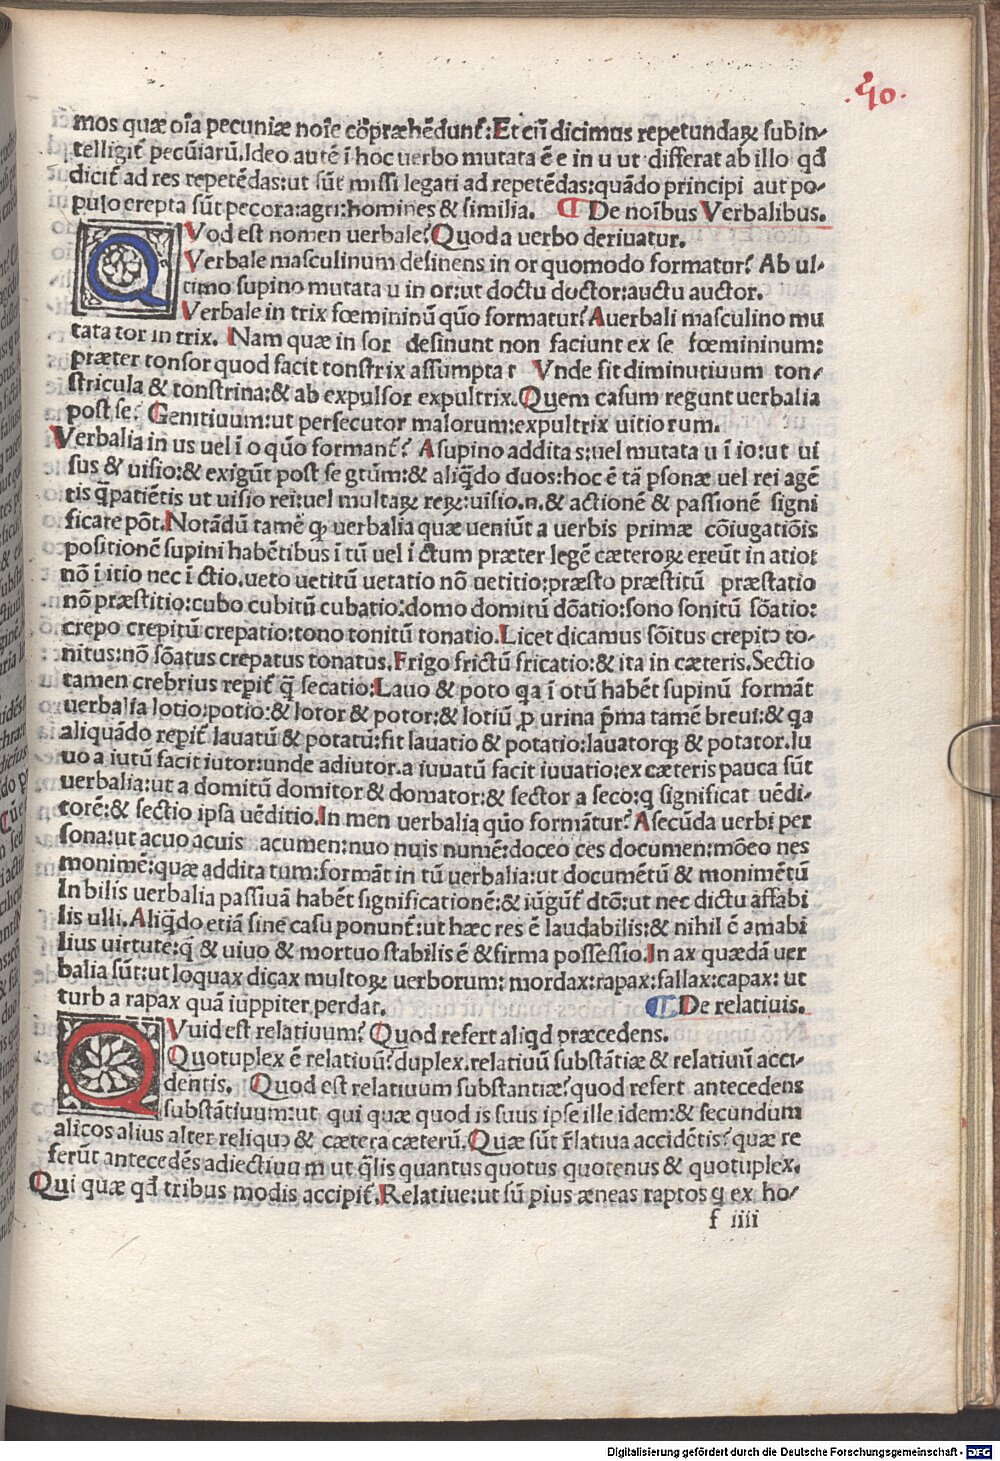 .40.
mos quæ oīa pecuniæ noīe cōpræhēdunt᷑:Et cū dicimus repetundaꝝ subin-
telligit᷑ pecūiarū.Ideo autē ī hoc uerbo mutata ē e in u ut differat ab illo qđ
dicit᷑ ad res repetēdas:ut sūt missi legati ad repetēdas:quādo principi aut po-
pulo erepta sūt pecora:agri:homines & similia. ¶ De noībus Verbalibus.
QVod est nomen uerbale? Quod a uerbo deriuatur.
Verbale masculinum desinens in or quomodo formatur? Ab ul-
timo supino mutata u in or:ut doctu doctor:auctu auctor.
Verbale in trix fœmininū quō formatur? A uerbali masculino mu
tata tor in trix. Nam quæ in sor desinunt non faciunt ex se fœmininum:
præter tonsor quod facit tonstrix assumpta t Vnde sit diminutiuum ton-
stricula & tonstrina:& ab expulsor expultrix. Quem casum regunt uerbalia
post se? Genitiuum:ut persecutor malorum:expultrix uitiorum.
Verbalia in us uel ī o quō formant᷑? A supino addita s:uel mutata u ī io:ut ui
sus & uisio:& exigūt post se gtūm:& aliqđo duos:hoc ē tā psonæ uel rei agē
tis q̄ patiētis ut uisio rei:uel multaꝝ reꝝ:uisio.n.& actionē & passionē signi
ficare pōt. Notādū tamē ꝙ uerbalia quæ ueniūt a uerbis primæ cōiugatiōis
positionē supini habētibus ī tū uel ī ctum præter legē cæteroꝝ exeūt in atio:
nō ī itio nec ī ctio.ueto uetitū uetatio nō uetitio:præsto præstitū præstatio
nō præstitio:cubo cubitū cubatio:domo domitū dōatio:sono sonitū sōatio:
crepo crepitū crepatio:tono tonitū tonatio. Licet dicamus sōitus crepitꝰ to-
nitus:nō sōatus crepatus tonatus. Frigo frictū fricatio:& ita in cæteris. Sectio
tamen crebrius repit᷑ q̄ secatio: Lauo & poto qa ī otū habēt supinū formāt
uerbalia lotio:potio:& lotor & potor:& lotiū ꝓ urina p̄ma tamē breui:& qa
aliquādo repit᷑ lauatū & potatū:fit lauatio & potatio:lauatorqꝫ & potator. Iu
uo a iutū facit iutor:unde adiutor.a iuuatū facit iuuatio:ex cæteris pauca sūt
uerbalia:ut a domitū domitor & domator:& sector a seco:q significat uēdi-
torē:& sectio ipsa uēditio. In men uerbalia quō formātur? A secūda uerbi per
sona:ut acuo acuis acumen:nuo nuis numē:doceo ces documen:mōeo nes
monimē:quæ addita tum:formāt in tū uerbalia:ut documētū & monimētū
In bilis uerbalia passiuā habēt significationē:& iūgūt᷑ dtō:ut nec dictu affabi
lis ulli. Aliqđo etiā sine casu ponunt᷑:ut hæc res ē laudabilis:& nihil ē amabi
lius uirtute:q̄ & uiuo & mortuo stabilis ē & firma possessio. In ax quædā uer
balia sūt:ut loquax dicax multoꝝ uerborum: mordax:rapax:fallax:capax: ut
turba rapax quā iuppiter perdat. ¶ De relatiuis.
QVuid est relatiuum? Quod refert aliqđ præcedens.
Quotuplex ē relatiuū? duplex.relatiuū substātiæ & relatiuū acci-
dentis. Quod est relatiuum substantiæ? quod refert antecedens
substātiuum:ut qui quæ quod is suus ipse ille idem:& secundum
alicos alius alter reliquꝰ & cætera cæterū. Quæ sūt r̄latiua accidētis? quæ re
ferūt antecedēs adiectiuum ut q̄lis quantus quotus quotenus & quotuplex.
Qui quæ qđ tribus modis accipit᷑. Relatiue:ut sū pius æneas raptos q ex ho-
f iiii
Digitalisierung gefördert durch die Deutsche Forschungsgemeinschaft - DFG